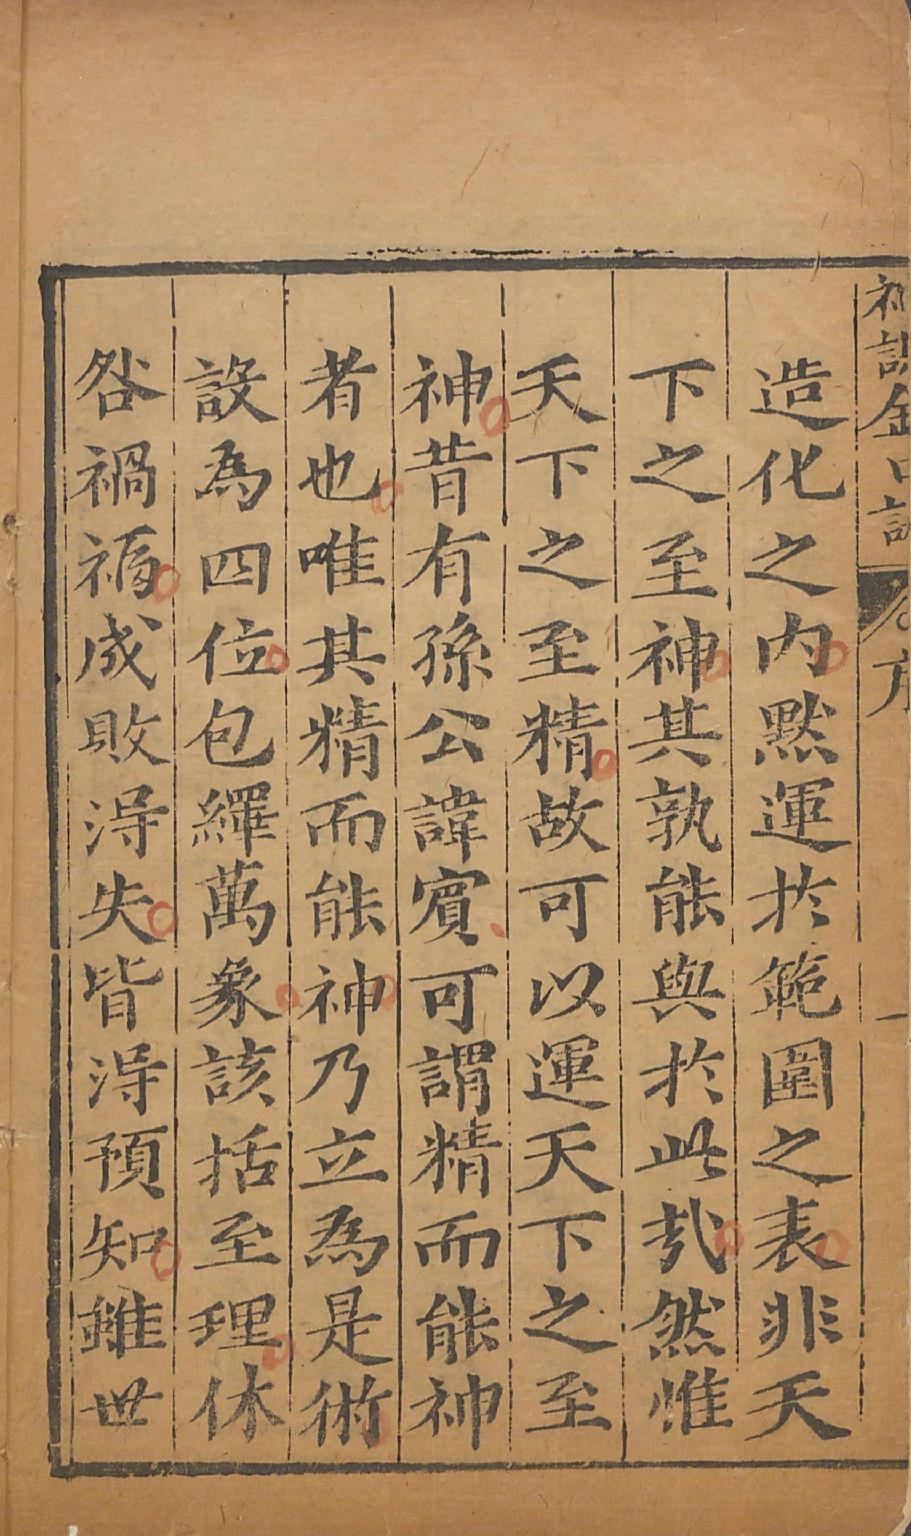 神課金口訣 序 一
造化之内默運於範圍之表非天
下之至神其孰能與於此㢤然惟
天下之至精故可以運天下之至
神昔有孫公諱賓可謂精而能神
者也唯其精而能神乃立為是術
設為四位包羅萬象該括至理休
咎禍福成敗淂失皆淂預知雖世